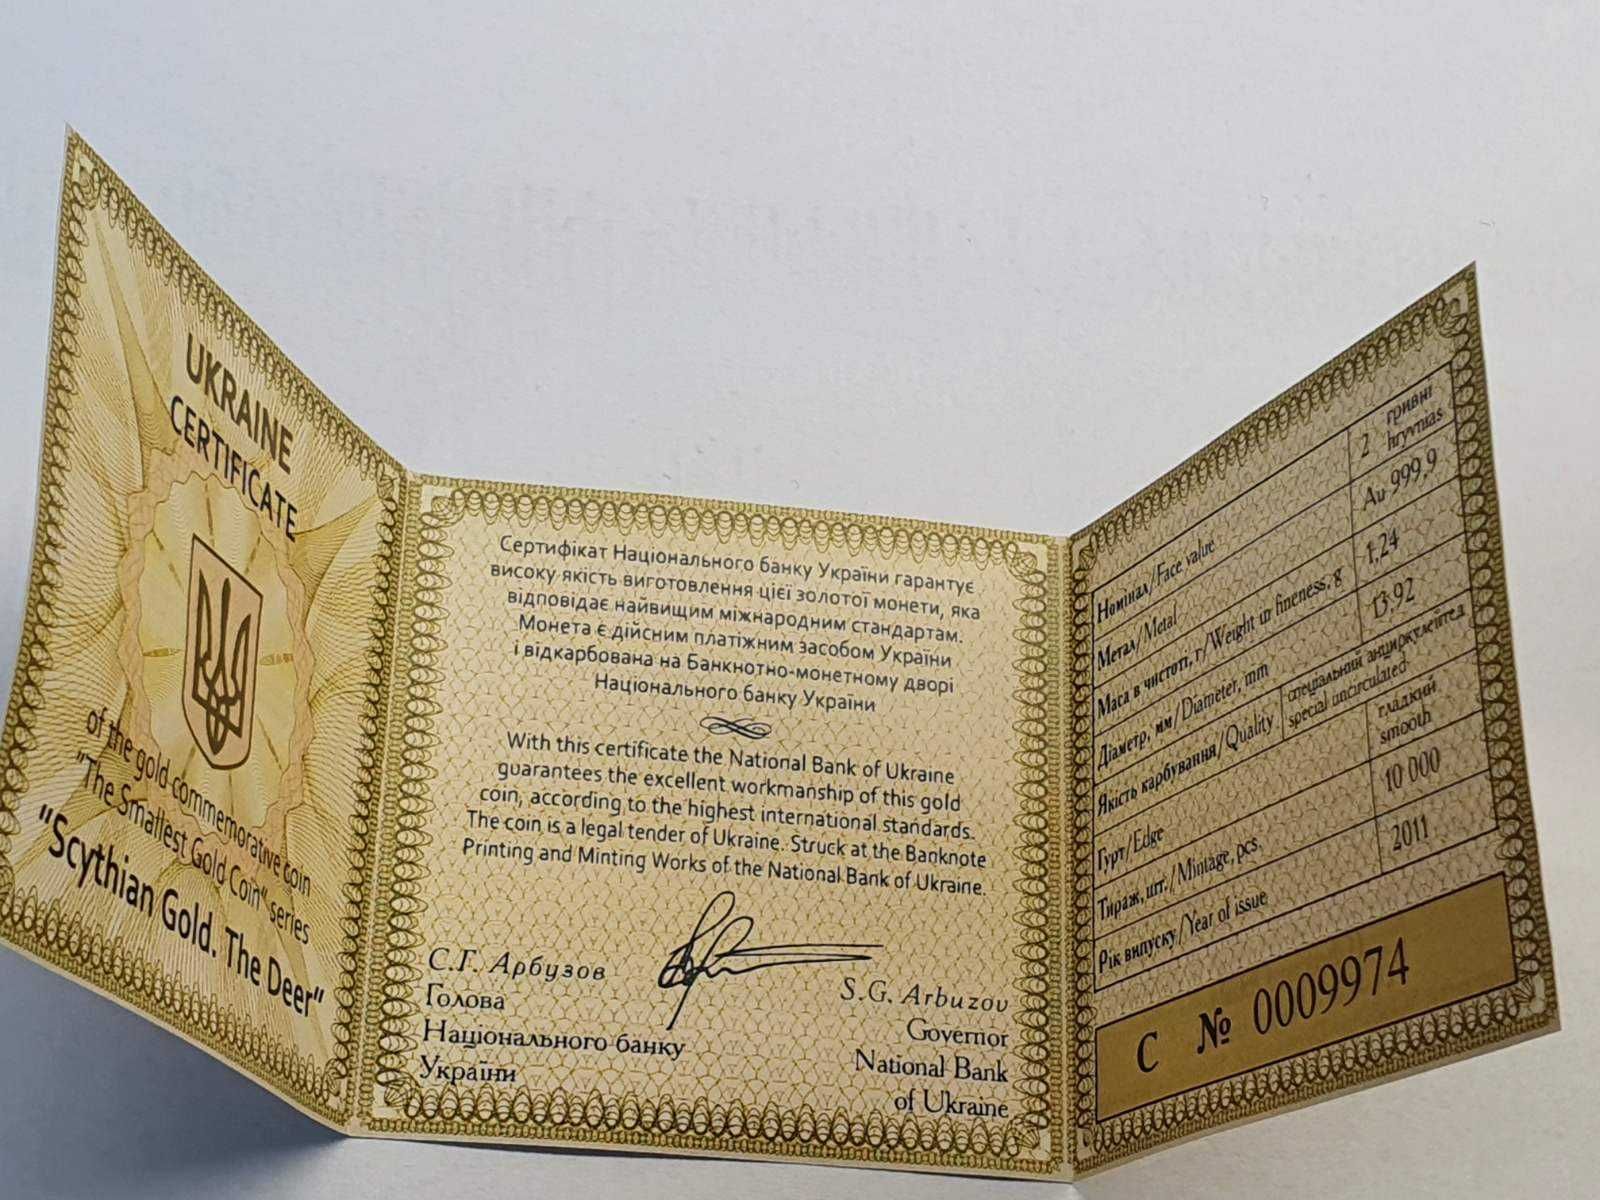 UKRAINE
CERTIFICATE
of the gold commemorative coin
"The Smallest Gold Coin" series
"Scythian Gold. The Deer"
Сертифікат Національного банку України гарантує
високу якість виготовлення цієї золотої монети, яка
відповідає найвищим міжнародним стандартам.
Монета є дійсним платіжним засобом України
і відкарбована на Банкнотно-монетному дворі
Національного банку України
With this certificate the National Bank of Ukraine
guarantees the excellent workmanship of this gold
coin, according to the highest international standards.
The coin is a legal tender of Ukraine. Struck at the Banknote
Printing and Minting Works of the National Bank of Ukraine.
С.Г. Арбузов
Голова
Національного банку
України
S.G. Arbuzov
Governor
National Bank
of Ukraine
Номінал/Face value 2 гривні hryvnias
Метал/Metal Au 999,9
Маса в чистоті, г/Weight in fineness, g 1,24
Діаметр, мм/Diameter, mm 13,92
Якість карбування/Quality спеціальний анциркулейтед special uncirculated
Гурт/Edge гладкий smooth
Тираж, шт./Mintage, pcs. 10 000
Рік випуску/Year of issue 2011
С № 0009974